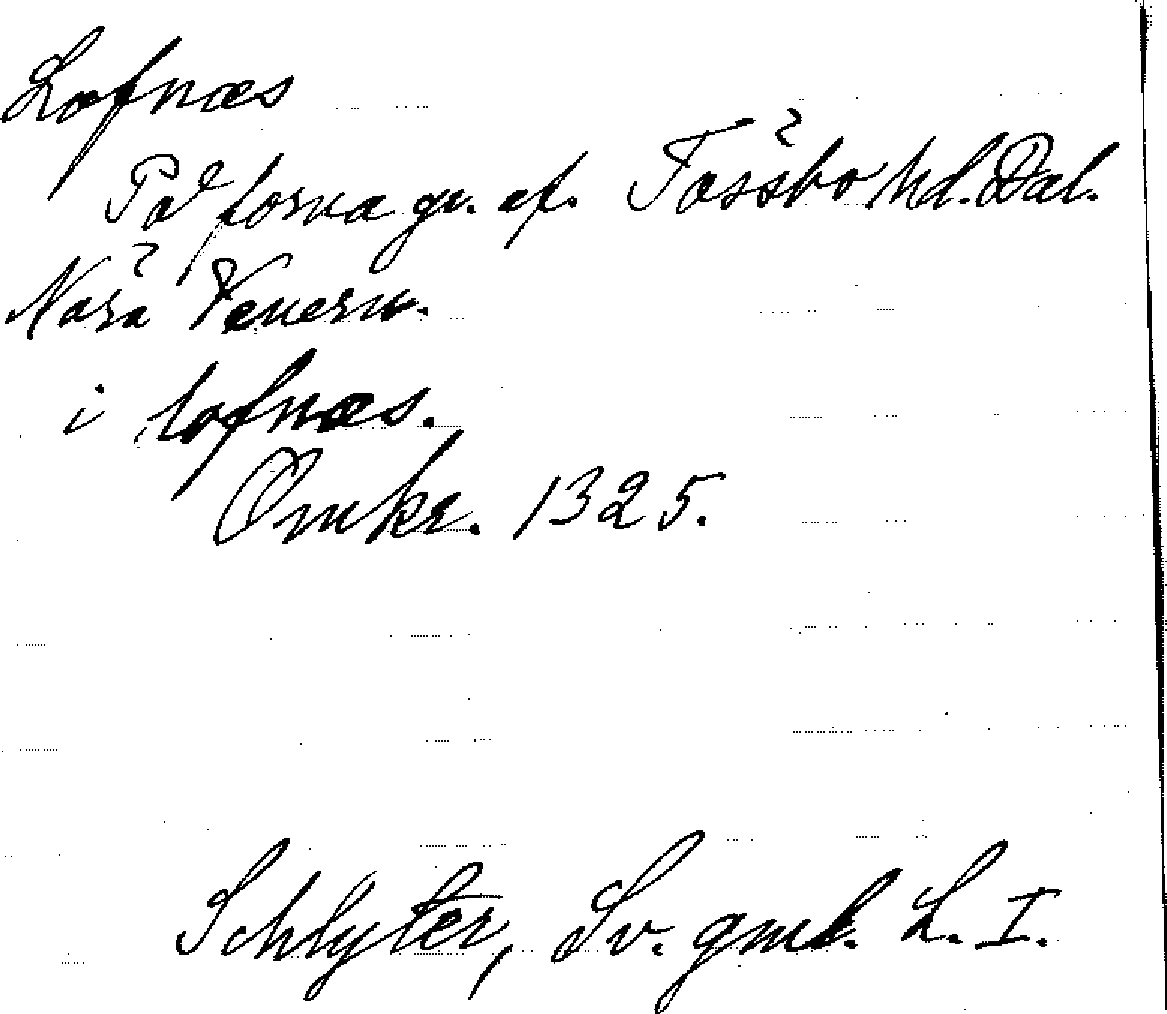 Lofnæs
På forna gr. af. Tössbo hd. Dal.
Nära Venern.
i lofnæs.
Omkr. 1325.
Schlyter, Sv. gml. L. I.